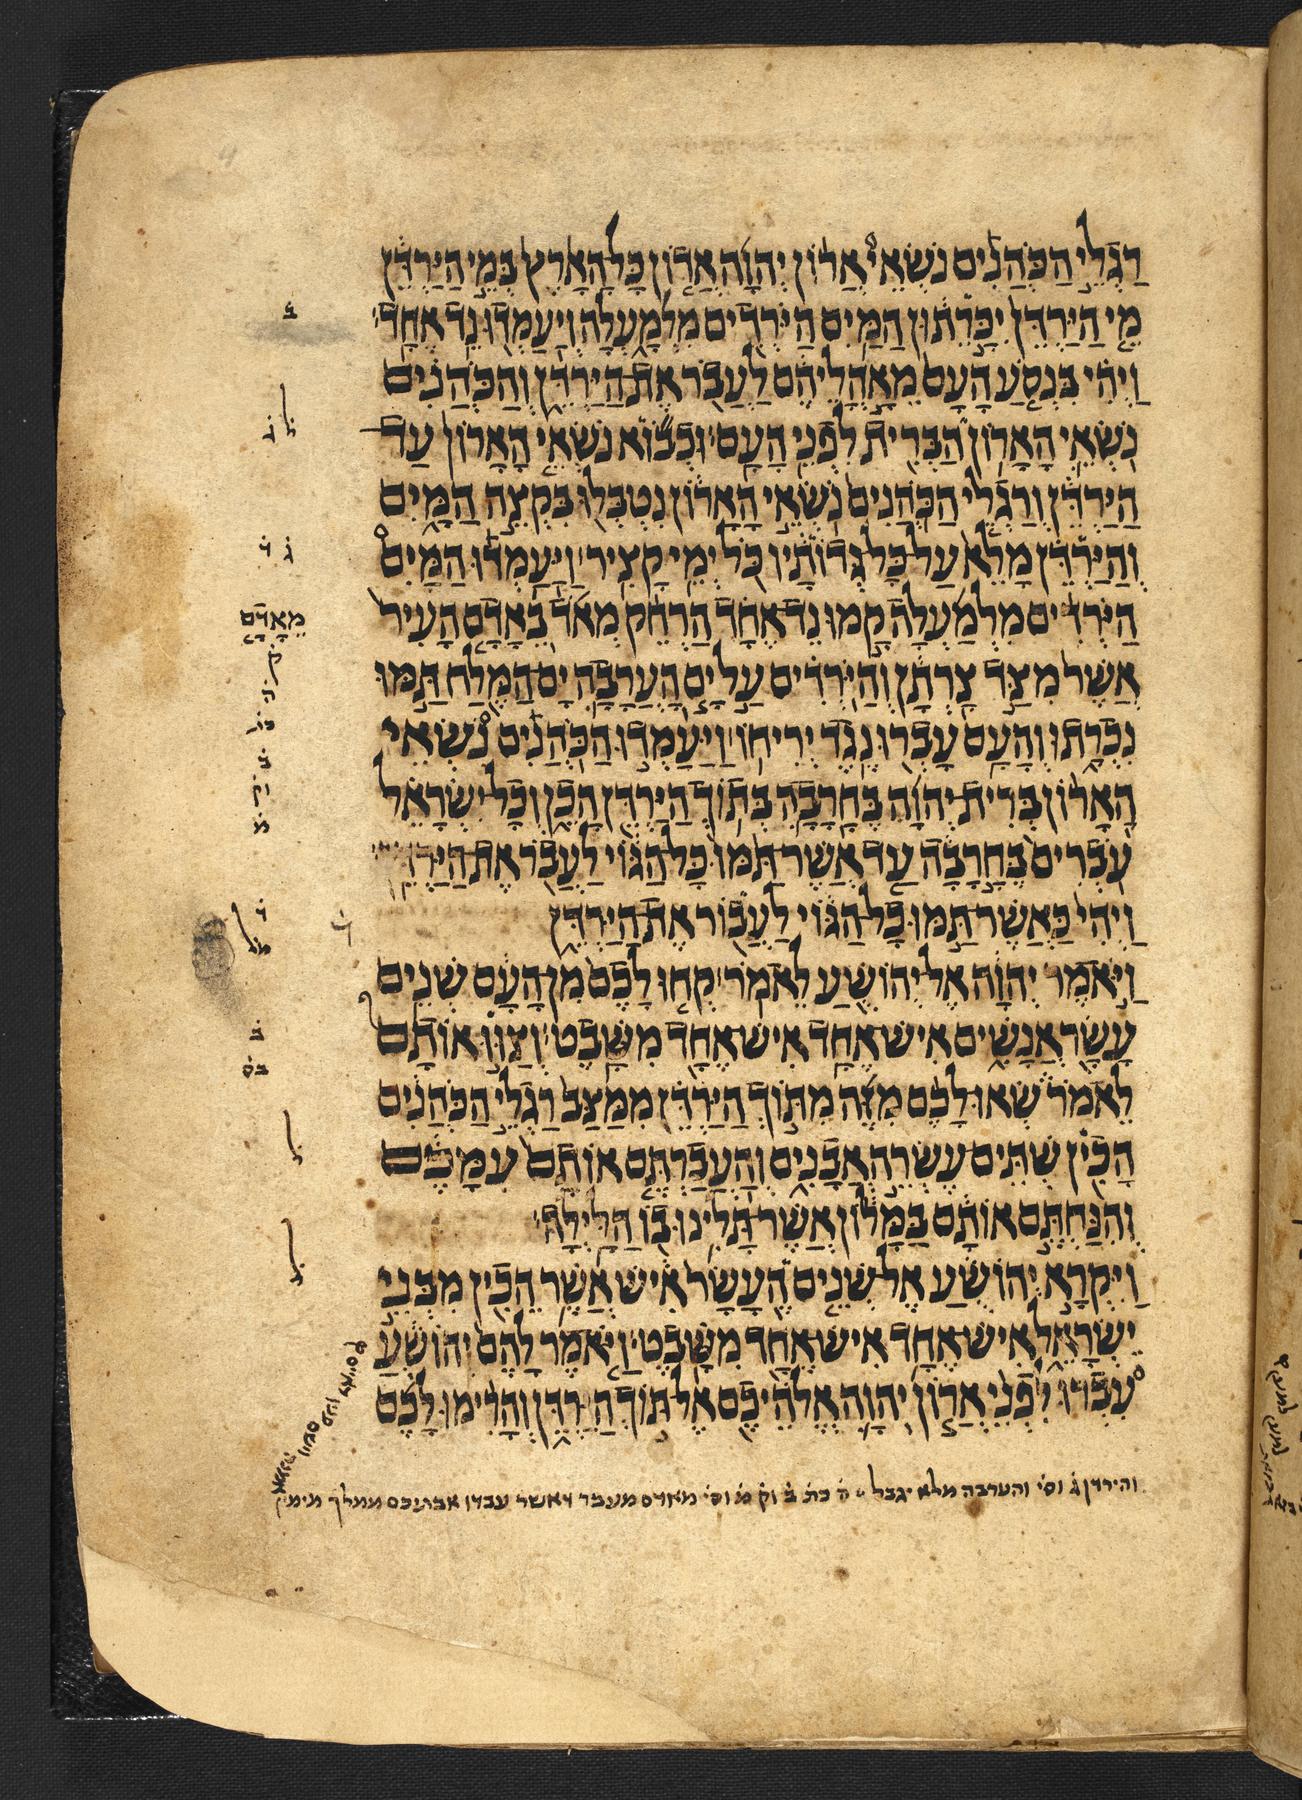 רַגְלֵי הַכֹּהֲנִים נֹשְׂאֵי אֲרוֹן יְהוָה אֲדוֹן כָּל הָאָרֶץ בְּמֵי הַיַּרְדֵּן
מֵי הַיַּרְדֵּן יִכָּרֵתוּן הַמַּיִם הַיֹּרְדִים מִלְמָעְלָה וְיַעַמְדוּ נֵד אֶחָד
וַיְהִי בִּנְסֹעַ הָעָם מֵאָהֳלֵיהֶם לַעֲבֹר אֶת הַיַּרְדֵּן וְהַכֹּהֲנִים
נֹשְׂאֵי הָאָרוֹן הַבְּרִית לִפְנֵי הָעָם וּכְבוֹא נֹשְׂאֵי הָאָרוֹן עַד
הַיַּרְדֵּן וְרַגְלֵי הַכֹּהֲנִים נֹשְׂאֵי הָאָרוֹן נִטְבְּלוּ בִּקְצֵה הַמָּיִם
וְהַיַּרְדֵּן מָלֵא עַל כָּל גְּדוֹתָיו כֹּל יְמֵי קָצִיר וַיַּעַמְדוּ הַמַּיִם
הַיֹּרְדִים מִלְמַעְלָה קָמוּ נֵד אֶחָד הַרְחֵק מְאֹד בֵאָדָם הָעִיר
אֲשֶׁר מִצַּד צָרְתָן וְהַיֹּרְדִים עַל יָם הָעֲרָבָה יָם הַמֶּלַח תַּמּוּ
נִכְרָתוּ וְהָעָם עָבְרוּ נֶגֶד יְרִיחוֹ וַיַּעַמְדוּ הַכֹּהֲנִים נֹשְׂאֵי
הָאָרוֹן בְּרִית יְהוָה בֶּחָרָבָה בְּתוֹךְ הַיַּרְדֵּן הָכֵן וְכָל יִשְׂרָאֵל
עֹבְרִים בֶּחָרָבָה עַד אֲשֶׁר תַּמּוּ כָּל הַגּוֹי לַעֲבֹר אֶת הַיַּרְדֵּן
וַיְהִי כַּאֲשֶׁר תַּמּוּ כָל הַגּוֹי לַעֲבוֹר אֶת הַיַּרְדֵּן
וַיֹּאמֶר יְהוָה אֶל יְהוֹשֻׁעַ לֵאמֹר קְחוּ לָכֶם מִן הָעָם שְׁנֵים
עָשָׂר אֲנָשִׁים אִישׁ אֶחָד אִישׁ אֶחָד מִשָּׁבֶט וְצַוּוּ אוֹתָם
לֵאמֹר שְׂאוּ לָכֶם מִזֶּה מִתּוֹךְ הַיַּרְדֵּן מִמַּצַּב רַגְלֵי הַכֹּהֲנִים
הָכִין שְׁתֵּים עֶשְׂרֵה אֲבָנִים וְהַעֲבַרְתֶּם אוֹתָם עִמָּכֶם
וְהִנַּחְתֶּם אוֹתָם בַּמָּלוֹן אֲשֶׁר תָּלִינוּ בוֹ הַלָּיְלָה
וַיִּקְרָא יְהוֹשֻׁעַ אֶל שְׁנֵים הֶעָשָׂר אִישׁ אֲשֶׁר הֵכִין מִבְּנֵי
יִשְׂרָאֵל אִישׁ אֶחָד אִישׁ אֶחָד מִשָּׁבֶט וַיֹּאמֶר לָהֶם יְהוֹשֻׁעַ
עִבְרוּ לִפְנֵי אֲרוֹן יְהוָה אֱלֹהֵיכֶם אֶל תּוֹךְ הַיַּרְדֵּן וְהָרִימוּ לָכֶם
ב
ל ד
ג ד
מֵאָדָם
ק
והירדן ג וס׳ והערבה מלא יגבל ה כת ב וק מ וס׳ מאדם מעבר דאשר עבדו אבתיכם ממלך